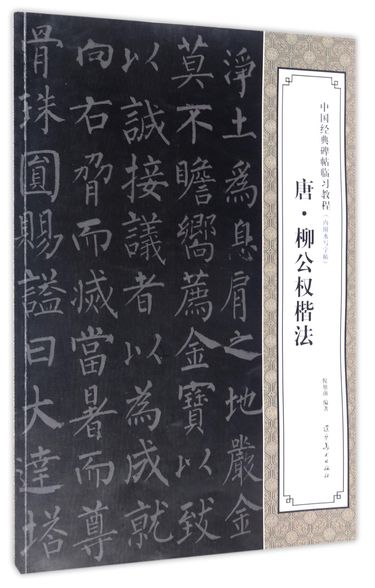 中国经典碑帖临习教程(内附水写字帖)
唐·柳公权楷法
编著
辽宁美术出版社
淨土為息肩之地嚴金
莫不瞻嚮薦金寶以致
以誠接議者以為成就
向右脅而滅當暑而尊
骨珠圓賜謚曰大達塔